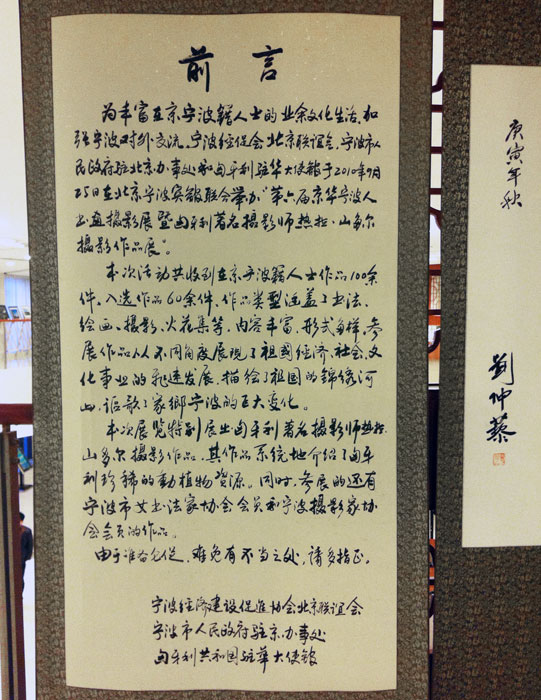 前言
为丰富在京宁波籍人士的业余文化生活,加
强宁波对外交流,宁波经促会北京联谊会、宁波市人
民政府驻北京办事处和匈牙利驻华大使馆于2010年9月
25日在北京宁波宾馆联合举办“第六届京华宁波人
书画摄影展暨匈牙利著名摄影师热拉·山多尔
摄影作品展”。
本次活动共收到在京宁波籍人士作品100余
件,入选作品60余件,作品类型涵盖了书法、
绘画、摄影、火花集等,内容丰富,形式多样,参
展作品从不同角度展现了祖國经济、社会、文
化事业的飞速发展,描绘了祖国的锦绣河
山,讴歌了家鄉宁波的巨大变化。
本次展览特别展出匈牙利著名摄影师热拉·
山多尔摄影作品,其作品系统地介绍了匈牙
利珍稀的動植物资源。同时,参展的还有
宁波市女书法家协会会员和宁波摄影家协
会会员的作品。
由于准备仓促,难免有不当之处,请多指正。
宁波经济建设促進协会北京联谊会
宁波市人民政府驻京办事处
匈牙利共和国驻華大使馆
庚寅年秋
劉仲蔡